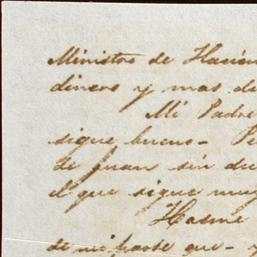 Ministro de Hacien
dinero y mas de
Mi Padre
sigue bueno- Pe
de Juan sin du
el que sigue muy
Hasme
de mi parte que- y